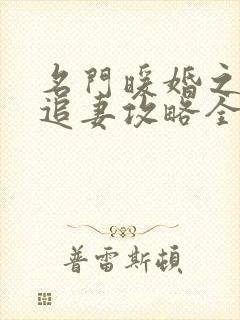 名門暖婚之
追妻攻略全
普雷斯頓